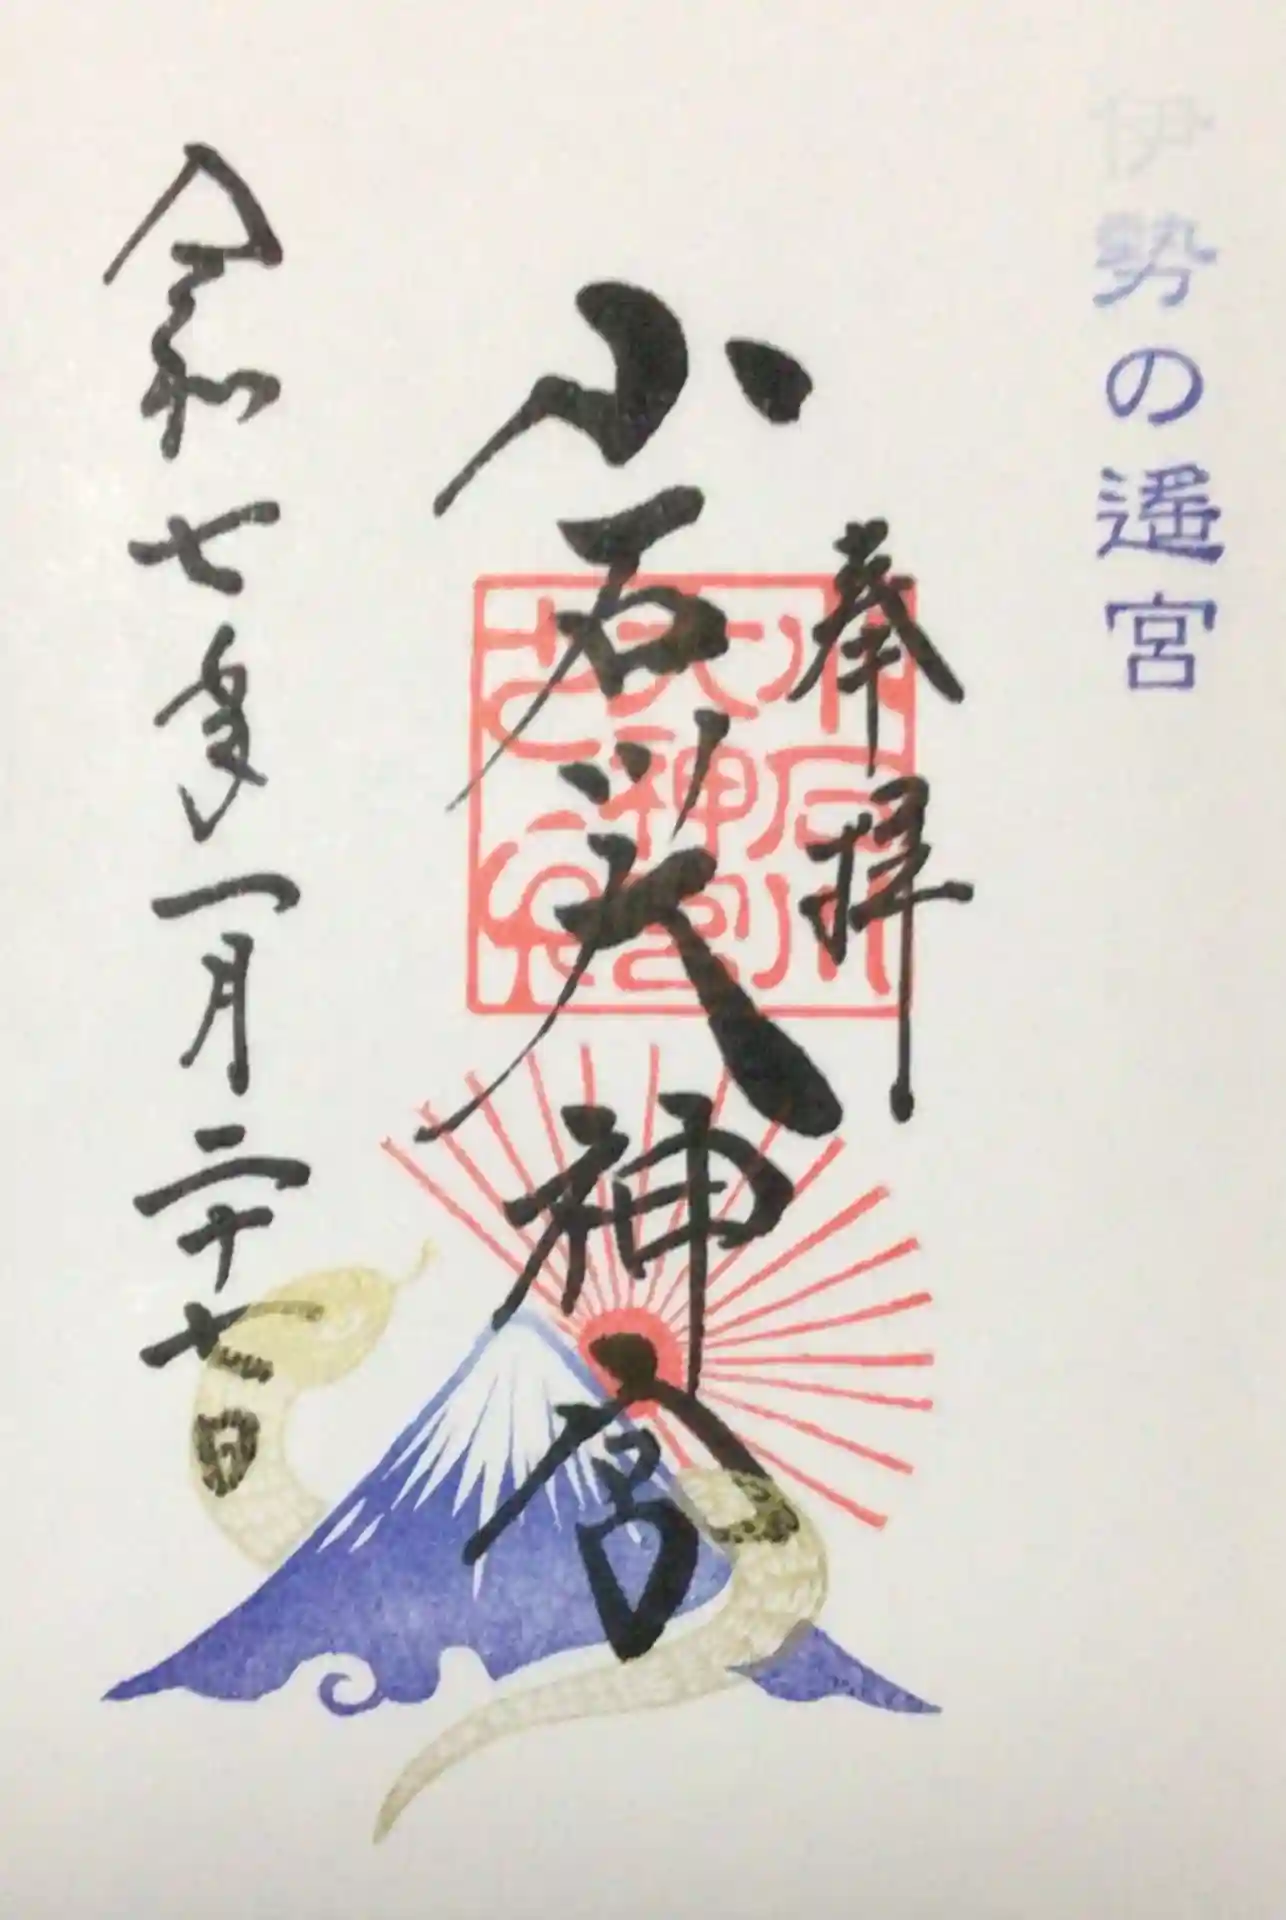 伊勢の遙宮
奉拝
小石川大神宮
小石川
大神宮
令和七年一月二十七日